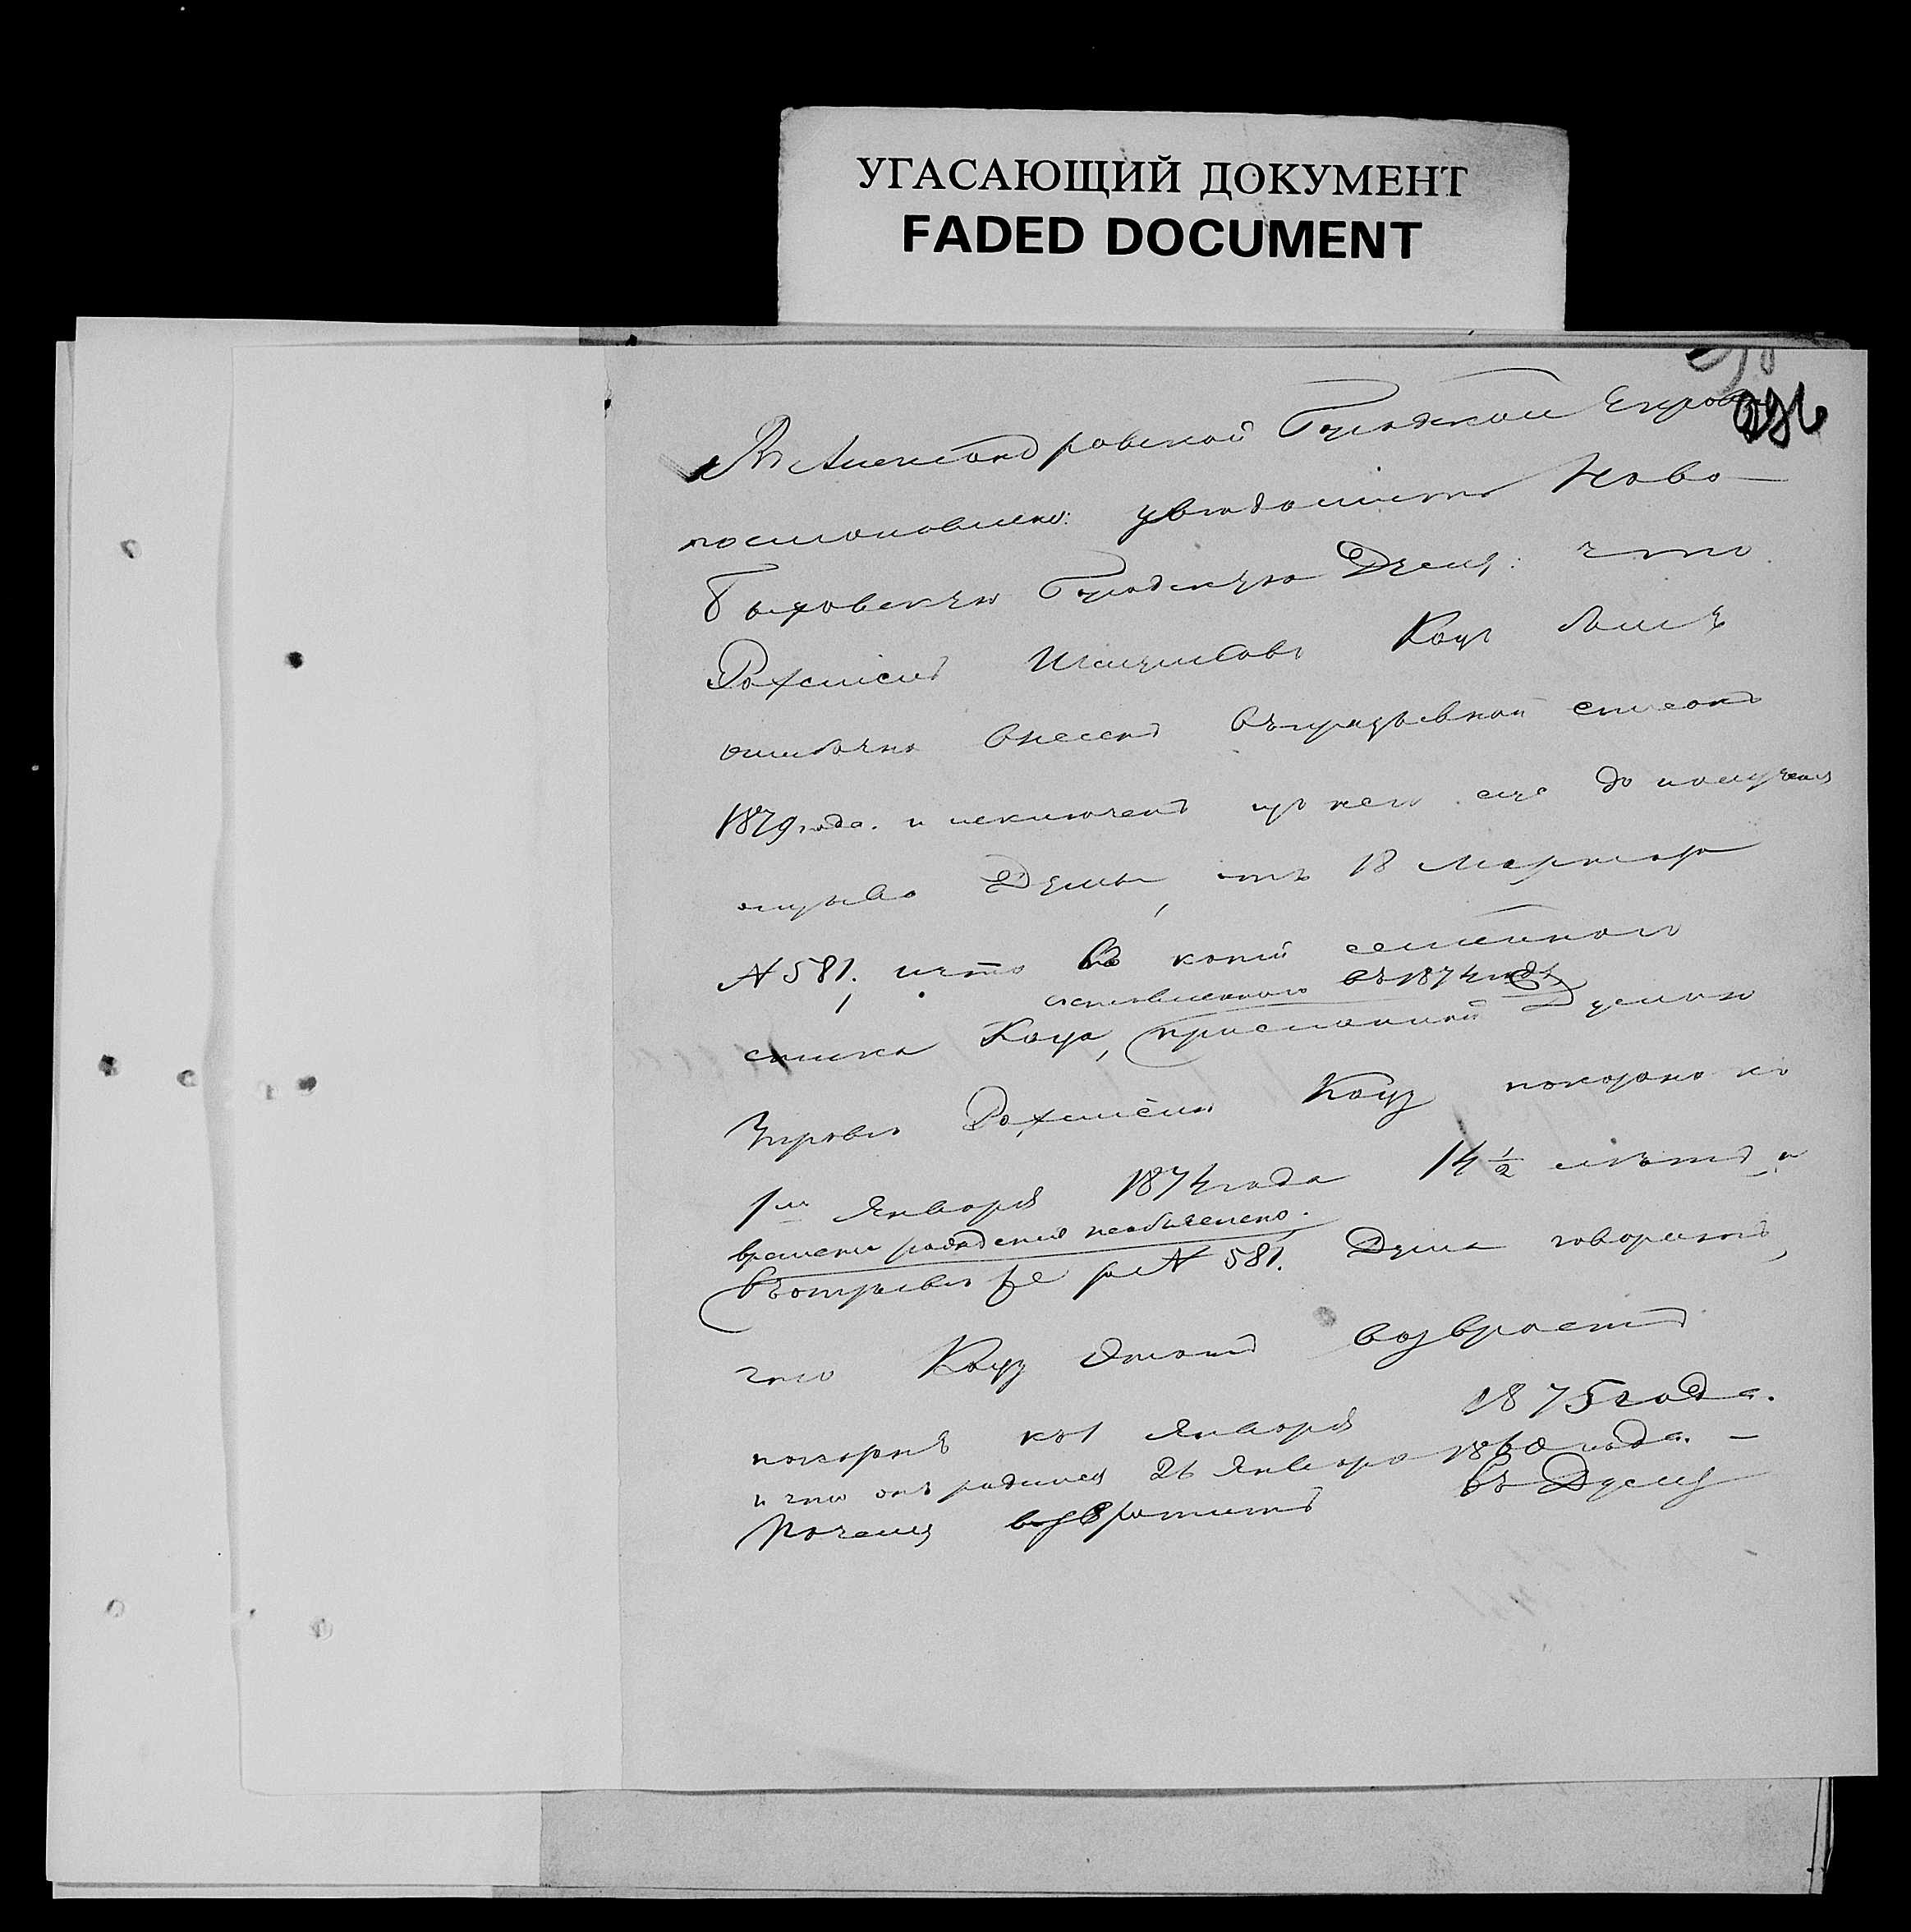 УГАСАЮЩИЙ ДОКУМЕНТ
FADED DOCUMENT
286
Въ Александровской Городской Управѣ
постановлено: увѣдомить Ново-
Быховскую Городскую Думу: что
Рохміель Кацъ былъ
ошибочно внесенъ въ призывной списокъ
1879 года. и исключенъ изъ него еще до полученія
отзыва Думы, отъ 18 Марта за
№ 581. и что въ копіи семейнаго
составленнаго въ 1874 году
списка Каца, присланной Думою
Управѣ Рохміелю Кацу показано къ
1му Января 1874 года 14 ½ лѣтъ, и
времени рожденія необъяснено.
въ отзывѣ же за № 581. Дума говоритъ,
что Кацу этотъ возврастъ
показанъ къ 1 Января 1875 года.
и что онъ родился 26 Января 1860 года. —
Почему возвратить въ Думу